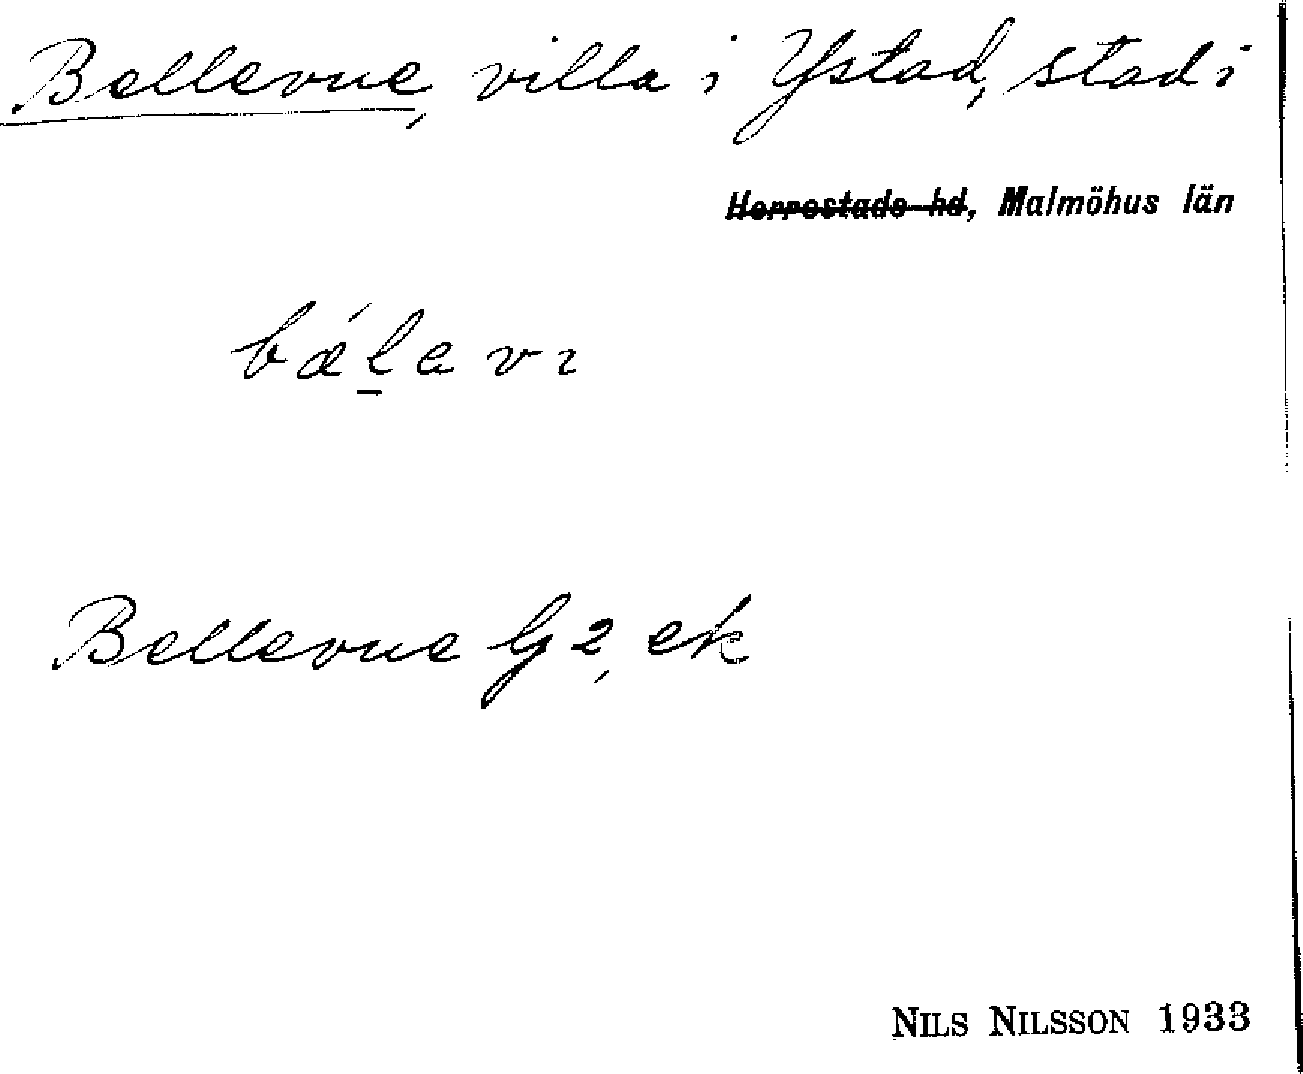 Bellevue, villa i Ystad, stad i
Herrestads hd, Malmöhus län
bǽl̠a vı
Bellevue G 2, ek
NILS NILSSON 1933